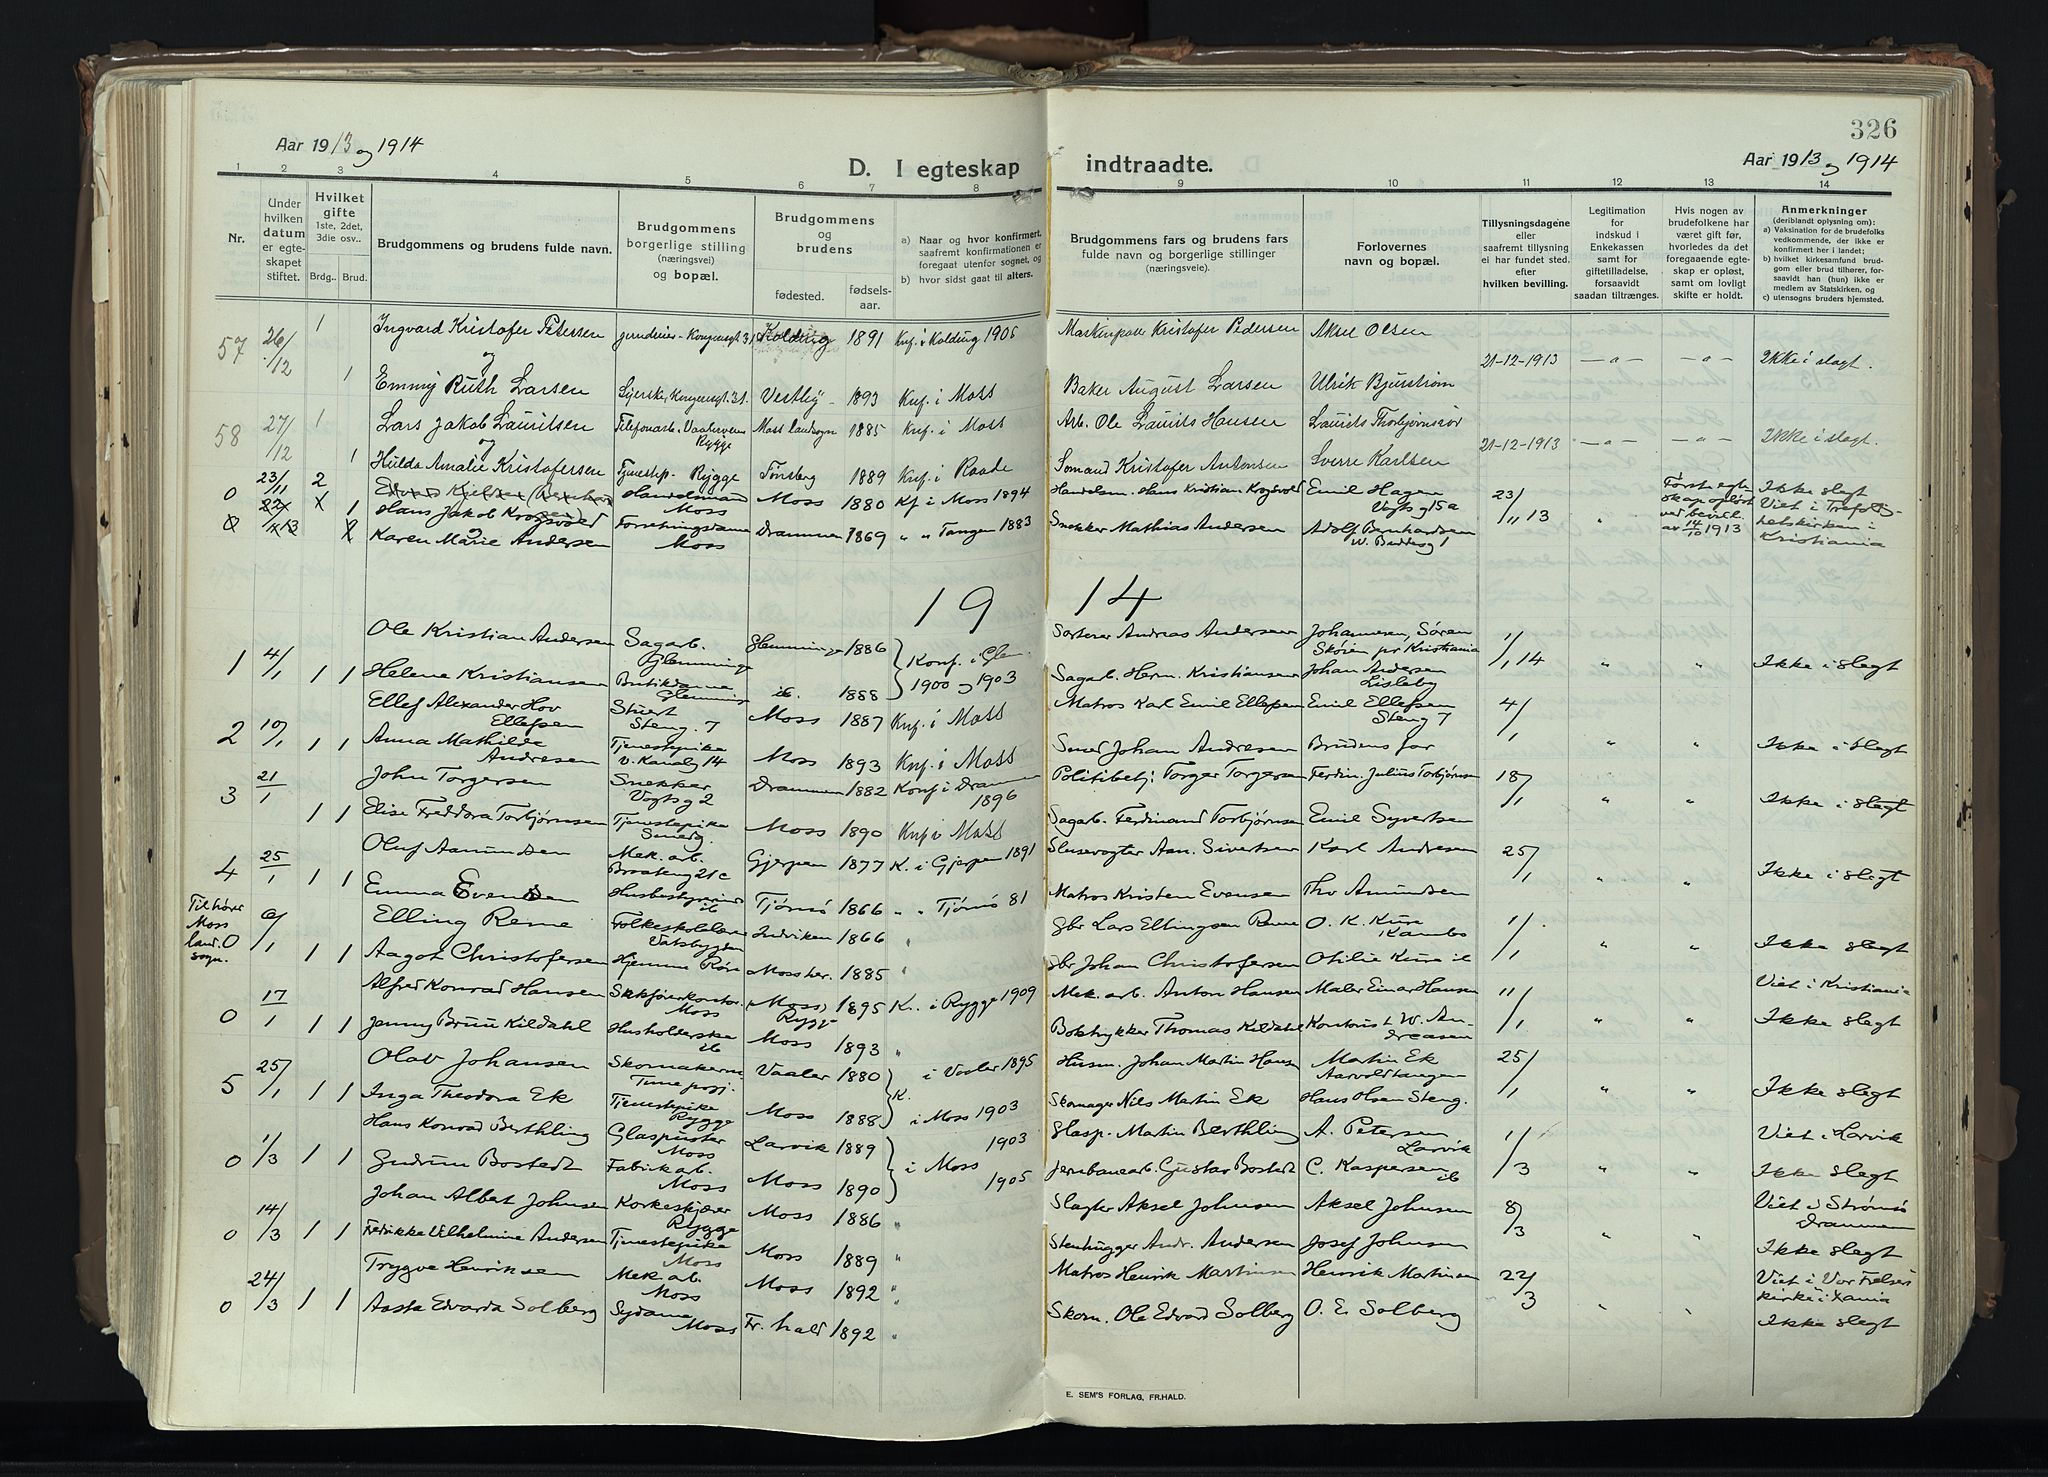 326
Aar 1913 og 1914
Aar 1913 og 1914
D. I egteskap indtraadte.
1 2 3 4 5 6 7 8 9 10 11 12 13 14
Nr.
Under hvilken datum er egteskapet stiftet.
Hvilket gifte 1ste, 2det, 3die osv..
Brdg.. Brud.
Brudgommens og brudens fulde navn.
Brudgommens borgerlige stilling (næringsvei) og bopæl.
Brudgommens og brudens
fødested. fødsels-aar.
a) Naar og hvor konfirmert, saafremt konfirmationen er foregaat utenfor sognet, og
b) hvor sidst gaat til alters.
Brudgommens fars og brudens fars fulde navn og borgerlige stillinger (næringsveie).
Forlovernes navn og bopæl.
Tillysningsdagene eller saafremt tillysning ei har fundet sted. efter hvilken bevilling.
Legitimation for indskud i Enkekassen samt for giftetilladelse, forsaavidt saadan tiltrænges.
Hvis nogen av brudefolkene har været gift før, hvorledes da det foregaaende egteskap er opløst, samt om lovligt skifte er holdt.
Anmerkninger (deriblandt oplysning om):
a) Vaksination for de brudefolks vedkommende, der ikke er konfirmert her i landet;
b) hvilket kirkesamfund brudgom eller brud tilhører, forsaavidt han (hun) ikke er medlem av Statskirken, og
c) utensogns bruders hjemsted.
57 26/12 1 Ingvard Kristofer Petersen Kongensgt. 31 Kolding 1891 Knf. i Kolding 1906 Kristofer Pedersen Aksel Olsen
og 21-12-1913 -"- -"- Ikke i slegt.
1 Emmy Ruth Larsen Kongensgt. 31. Vestby 1893 Knf. i Moss Baker August Larsen Ulrik Bjurstrøm
58 27/12 1 Lars Jakob Lauritsen Telefonarb. Moss landsogn 1885 Knf. i Moss Arb. Ole Laurits Hansen Laurits
og Rygge 21-12-1913 -"- -"- Ikke i slegt.
1 Hulda Amalie Kristofersen Tjenestep. Rygge Tønsberg 1889 Knf. i Raade Sømand Kristofer Antonsen Sverre Karlsen
0 23/11 2 Handelsmand Moss Moss 1880 Kf i Moss 1894 Handelsm. Hans Kristian Krogsvold Emil Hagen Vogts g 15a 23/11 13 Første egteskap opløst ved bevill. av 14/10 1913 Ikke slegt Viet i Trefoldighetskirken i Kristiania
1 Hans Jakob Krogsvold
og
Karen Marie Andersen Forretningsdame Moss Drammen 1869 " " Tangen 1883 Snekker Mathias Andersen Adolf Bernhardsen
1914
1 4/1 1 1 Ole Kristian Andersen Sagarb. Glemminge Glemminge 1886 Konf. i Glem. 1900 og 1903 Sorterer Andreas Andersen Johannesen, Søren Skøien pr Kristiania 1/1 14 " " Ikke i slegt
Helene Kristiansen Butikdame Glemminge ib. 1888 Sagarb. Herm. Kristiansen Johan Andersen Lisleby
2 10/1 1 1 Ellef Alexander Hov Ellefsen Stuert Steng. 7 Moss 1887 Knf. i Moss Matros Karl Emil Ellefsen Emil Ellefsen Steng 7 4/1 " " Ikke i slegt
Anna Mathilde Andresen Tjenestepike v. Kanalg 14 Moss 1893 Knf. i Moss Smed Johan Andresen Brudens far
3 21/1 1 1 John Torgersen Snekker Vogts g 2 Drammen 1882 Konf i Drammen 1896 Politibetj. Torger Torgersen Ferdin. Julius Torbjørnsen 18/1 " " Ikke i slegt
Elise Freddora Torbjørnsen Tjenestepike Moss 1890 Knf i Moss Sagarb. Ferdinand Torbjørnsen Emil Syvertsen
4 25/1 1 1 Oluf Aamundsen Mek. arb. Gjerpen 1877 K. i Gjerpen 1891 Slusevogter Aan. Sivertsen Karl Andresen 25/1 " " Ikke i slegt
Emma Evensen Husbestyrerinde ib Tjømø 1866 " " Tjømø 81 Matros Kristen Evensen Thv Amundsen
Tilhører Moss lands. sogn. 0 6/1 1 1 Elling Reme Folkeskolelærer Indviken 1866 " Gbr Lars Ellingsen Reme O. K. Kure Kambo 1/1 " " Ikke slegt
Aagot Christofersen Hjemme Mossher. 1885 " Gbr Johan Christofersen Otilie Kure ib
0 17/1 1 1 Alfred Konrad Hansen Moss (Moss) Rygge 1895 K. i Rygge 1909 Mek. arb. Anton Hansen Maler Einar Hansen 11/1 " " Viet i Kristiania Ikke slegt
Jenny Bruu Kildahl Husholderske ib Moss 1893 " Boktrykker Thomas Kildahl Kontorist W. Andreasen
5 25/1 1 1 Olav Johansen Vaaler 1880 K. i Vaaler 1895 Husm. Johan Martin Hansen Martin Ek Aarvoldtangen 25/1 " " Ikke slegt
Inga Theodora Ek Tjenestepike Rygge Moss 1888 i Moss 1903 Skomager Nils Martin Ek Hans Olsen Steng.
0 1/3 1 1 Hans Konrad Berthling Glaspuster Moss Larvik 1889 i Moss 1903 Glasp. Martin Berthling A. Petersen Larvik 1/3 " " Viet i Larvik Ikke slegt
Gudrun Bostedt Fabrikarb. Moss Moss 1890 1905 Jernbanearb. Gustav Bostedt C. Kaspersen ib
0 14/3 1 1 Johan Albert Johnsen Korkeskjærer Rygge Moss 1886 " Slagter Aksel Johnsen Aksel Johnsen 8/3 " " Viet i Strømsø Drammen Ikke slegt
Fredrikke Vilhelmine Andersen Tjenestepike Moss Moss 1889 " Stenhugger Andr. Andersen Josef Johnsen
0 24/3 1 1 Trygve Henriksen Mek. arb. Moss Moss 1892 " Matros Henrik Martinsen Henrik Martinsen 22/3 " " Viet i Vor Frelsers kirke i Xania Ikke slegt
Aasta Edvarda Solberg Sydame Moss Fr. hald 1892 " Skom. Ole Edvard Solberg O. E. Solberg
E. SEM'S FORLAG, FR.HALD.